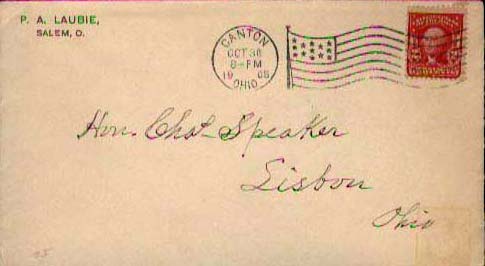 P. A. LAUBIE,
SALEM, O.
CANTON
OCT 30
8-PM
19 05
OHIO
Hon. Chat Speaker
Lisbon
Ohio